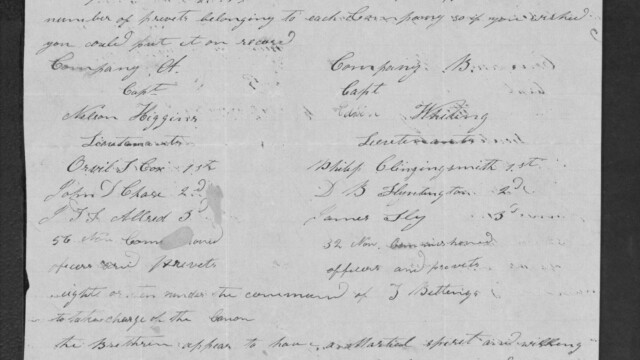 number of privets belonging to each Company so if you wished
you could put it on record
Company A. Company B.
Capt Capt
Nelson Higgins Whiting
Lieutenants Lieutenants
Orvil S Cox 1st Philip Clingingsmith 1st
John D Chase 2d D B Huntington 2d
Allred 3d James Sly 3d
56 Non Com and 32 Non Commishoned
officers and privets officers and privets
eight or ten under the command of J
to take charge of the Canon
the Brethren appear to have a Martial spirit and